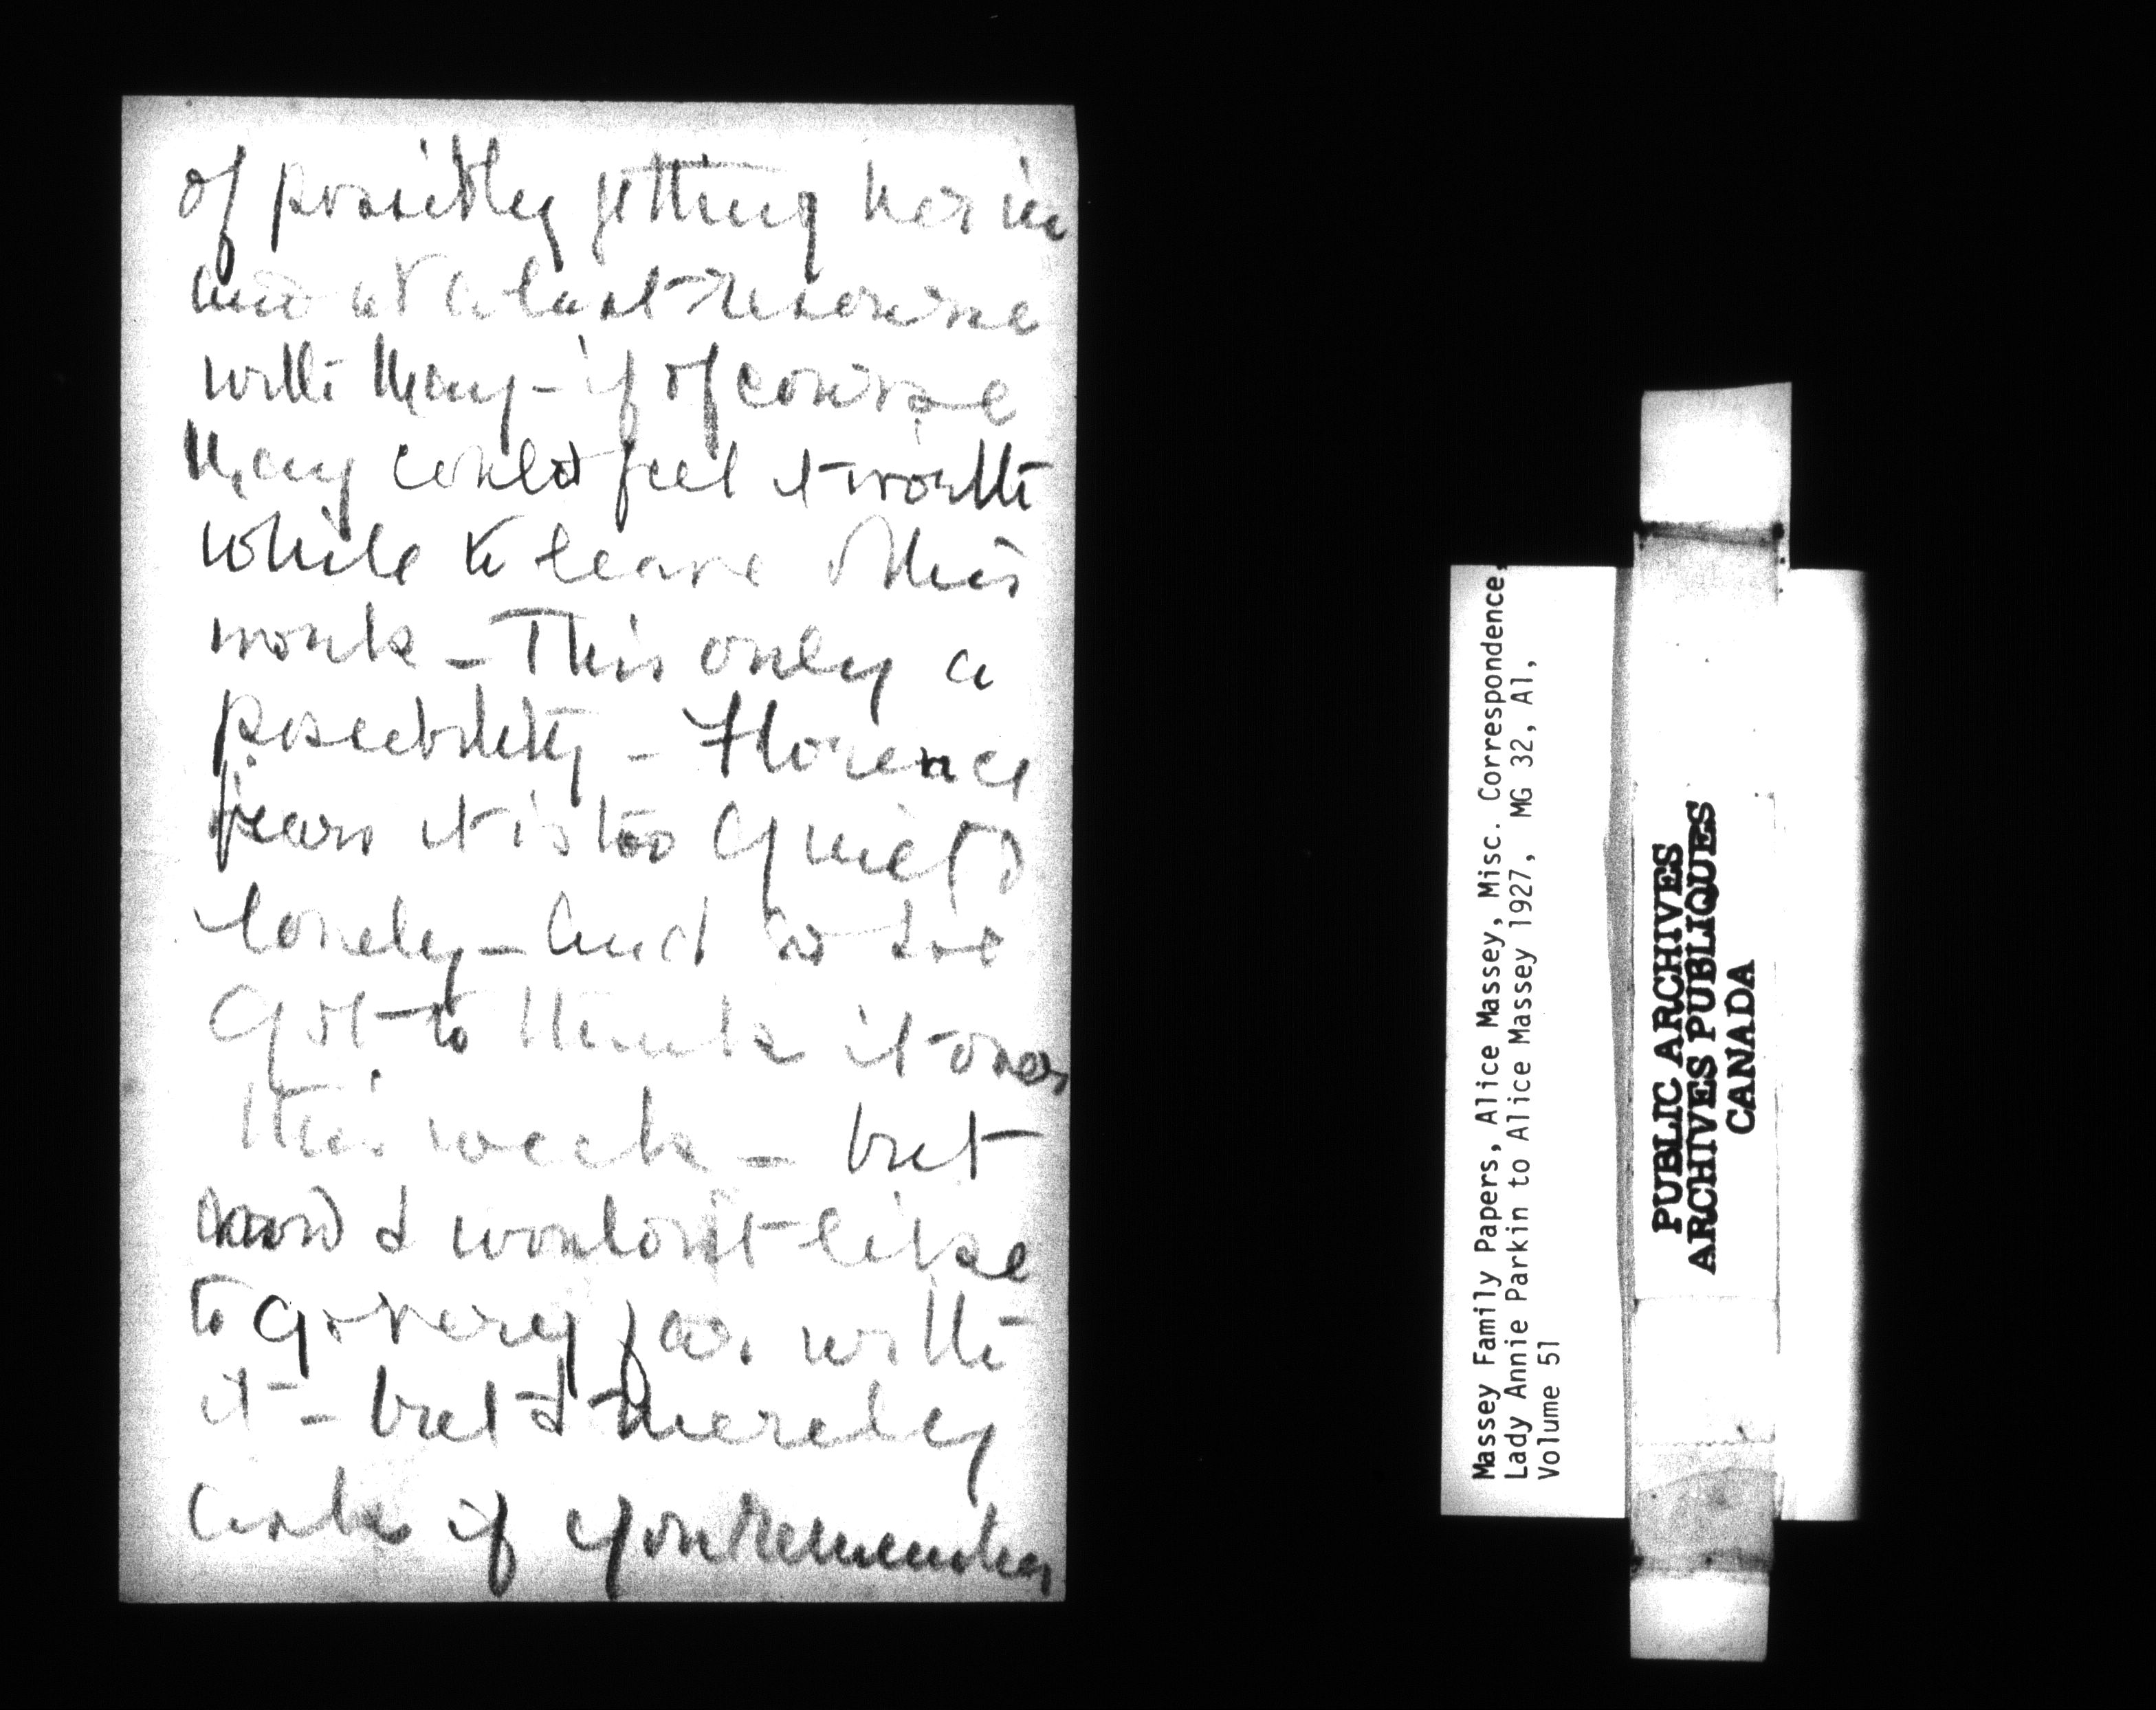 of possibly getting her in
and as a last resource
with Mary - if of course
Mary could feel it worth
while to leave this
work - This only a
possibility - Florence
fears it is too quiet &
lonely - and so I've
got to think it over
this week - but
I wouldn't like
to go very far with
it - but I merely
ask if you remember
Massey Family Papers, Alice Massey, Misc. Correspondence,
Lady Annie Parkin to Alice Massey 1927, MG 32, A1,
Volume 51
PUBLIC ARCHIVES
ARCHIVES PUBLIQUES
CANADA